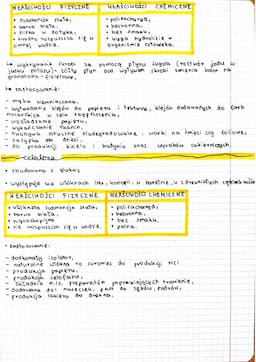 WŁAŚCIWOŚCI FIZYCZNE
WŁAŚCIWOŚCI CHEMICZNE
• substancja stała,
• barwa biała,
• śliska w dotyku,
• trudno rozpuszcza się w zimnej wodzie.
• polisacharyd,
• bezwonna,
• bez smaku,
• ulega hydrolizie w organizmie człowieka.
↳ wykrywanie skrobi za pomocą płynu Lugola (roztwór jodu w
jodku potasu)- żółty płyn pod wpływem skrobi zmienia kolor na
granatowo - fioletowe.
↳ zastosowanie:
- mąka ziemniaczana,
- wytwarzanie klejów do papieru i tektury, klejów dodawanych do farb
malarskich w celu zagęszczenia,
- wygładzanie papieru,
- wykańczanie tkanin,
- tworzywa sztuczne biodegradowalne, worki na śmieci czy foliowe,
- do produkcji kisielu i budyniu oraz wyrobów cukierniczych.
celuloza
• zbudowana z glukozy
• występuje we włóknach lnu, konopi, w bawełnie, w zdrewniałych częściach roślin
WŁAŚCIWOŚCI FIZYCZNE
WŁAŚCIWOŚCI CHEMICZNE
• włóknista substancja stała,
• barwa biała,
• higroskopijna
• nie rozpuszcza się w wodzie.
• polisacharyd,
• bezwonna,
• bez smaku,
• palna.
• zastosowanie:
- doskonały izolator,
- naturalne włókna to surowiec do produkcji nici
- produkcja papieru,
- produkcja celofanu,
- składnik m.in. preparatów poprawiających trawienie,
- dodawana do: maseczek, past do zębów, pudrów,
- produkcja lakieru do drewna.